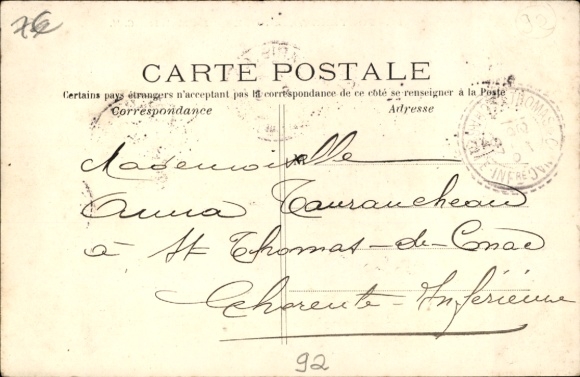 7€
92
CARTE POSTALE
Certains pays étrangers n'acceptant pas la correspondance de ce côté se renseigner à la Poste
Correspondance Adresse
Mademoiselle
Anna Tauraucheau
à St Thomas-de-Conac
Charente-Inférieure
92